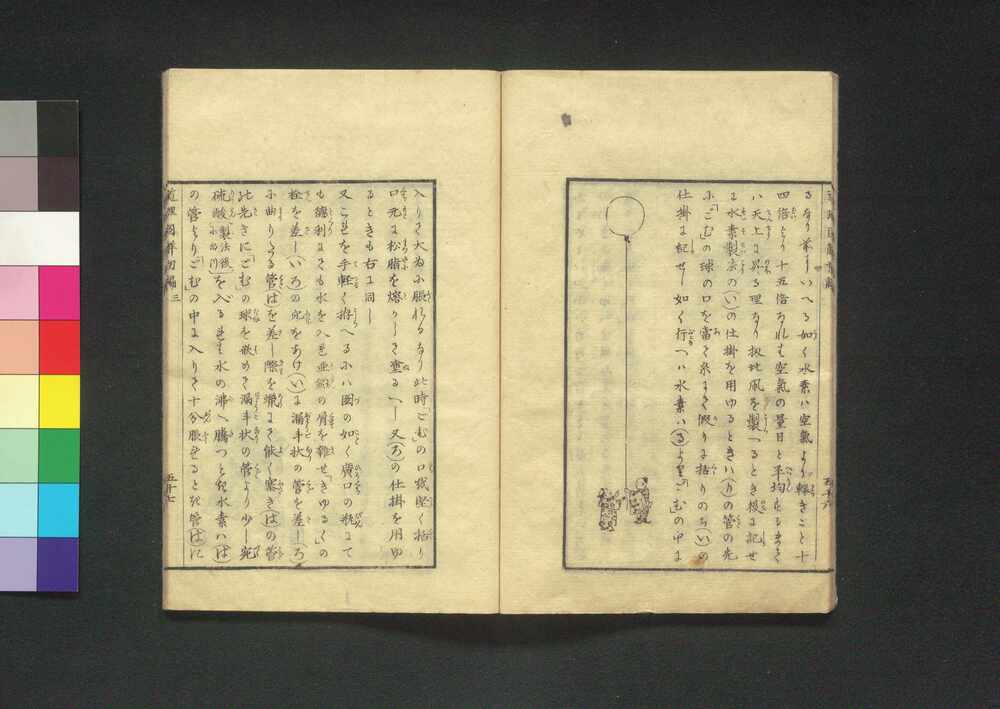 るなり前にいへる如く水素ハ空氣より輕きこと十
四倍より十五倍なれバ空氣の量目と平均するまで
ハ天上に昇る理なり扨此風を製つるとき後に記せ
る水素製法の(い)の仕掛を用ゆるときハ(り)の管の先
に「ごむ」の球の口を當て糸にて假りに括りのち(い)の
仕掛に記せし如く行へハ水素ハ(る)より「ごむ」の中に
五十六
入りて大ゐに脹れるなり此時「ごむ」の口或堅く括り
口元に松脂を熔かして塗るへし又(ろ)の仕掛を用ゆ
るときも右に同し
又これを手軽く拵へるにハ圖の如く廣口の瓶にて
も德利にても水を入れ亜鉛の屑を雜せ「きゆるく」の
栓を差し(いろ)の穴をあけ(い)に漏斗状の管を差し(ろ)
に曲りたる管(は)を差し際を蠟にて能く塞き(は)の管
の先きに「ごむ」の球を嵌めて漏斗状の管より少し宛
硫酸製法後に出ツを入るれバ水の沸へ騰つと死水素ハ(は)
の管より「ごむ」の中に入りて十分脹せると死管(は)に
道理圖解初編 三
五十七